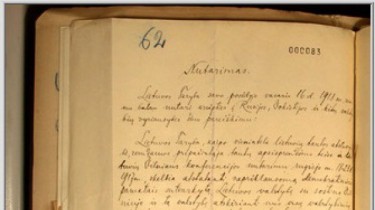 62
000083
Nutarimas.
Lietuvos Taryba savo posėdyje vasario 16 d. 1918 m.
balsu nutarė kreiptis į Rusijos, Vokietijos ir kitų
vyriausybes šiuo pareiškimu:
Lietuvos Taryba, kaipo vienintelė lietuvių tautos
remdamos pripažintąja tautų apsisprendimo teise ir
Vilniaus konferencijos nutarimu rugsėjo m. 18-23 d.
skelbia atstatanti nepriklausomą demokratiniais
pamatais sutvarkytą Lietuvos valstybę su sostine
ir tą valstybę atskirianti nuo visų valstybinių